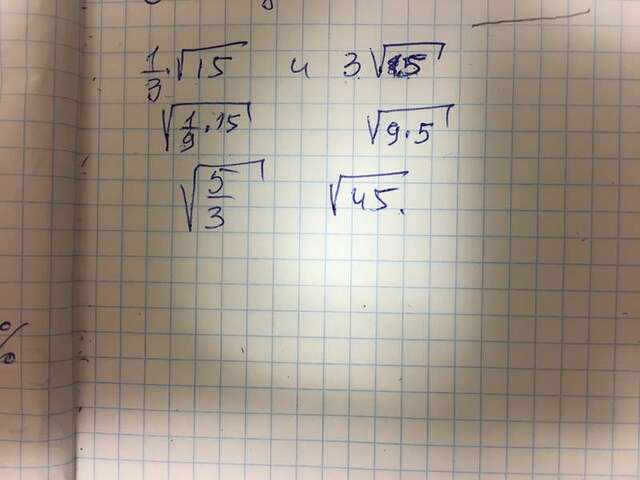 1/3 · √15 и 3√5
√(1/9 · 15) √(9·5)
√(5/3) √45.
%